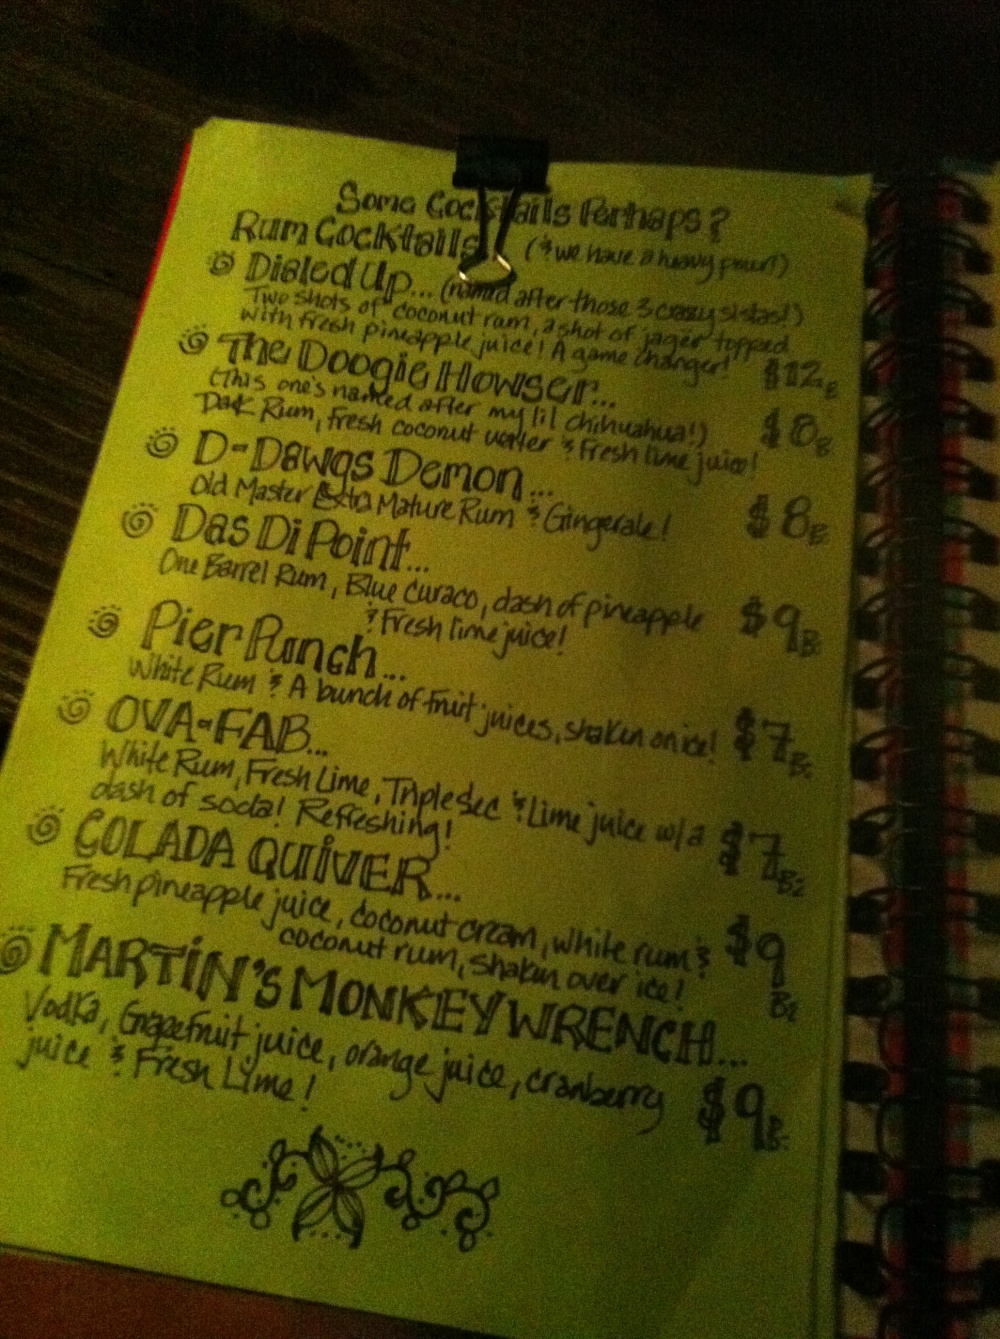 Some Cocktails Perhaps?
Rum Cocktails (& we have a heavy pour!)
Dialed Up... (named after those 3 crazy sistas!)
Two shots of coconut rum, a shot of jager topped
with fresh pineapple juice! A game changer! $12
The Doogie Howser...
(This one's named after my lil chihuahua!) $8
Dark Rum, fresh coconut water & Fresh lime juice!
D-Dawgs Demon...
Old Master Extra Mature Rum & Gingerale! $8
Das Di Point...
One Barrel Rum, Blue Curaco, dash of pineapple $9
& Fresh lime juice!
Pier Punch...
White Rum & A bunch of fruit juices, shaken on ice! $7
OVA-FAB...
White Rum, Fresh Lime, Triple Sec & Lime juice w/a $7
dash of soda! Refreshing!
COLADA QUIVER...
Fresh pineapple juice, coconut cream, white rum & $9
coconut rum, shaken over ice!
MARTIN'S MONKEY WRENCH...
Vodka, Grapefruit juice, orange juice, cranberry $9
juice & Fresh Lime!